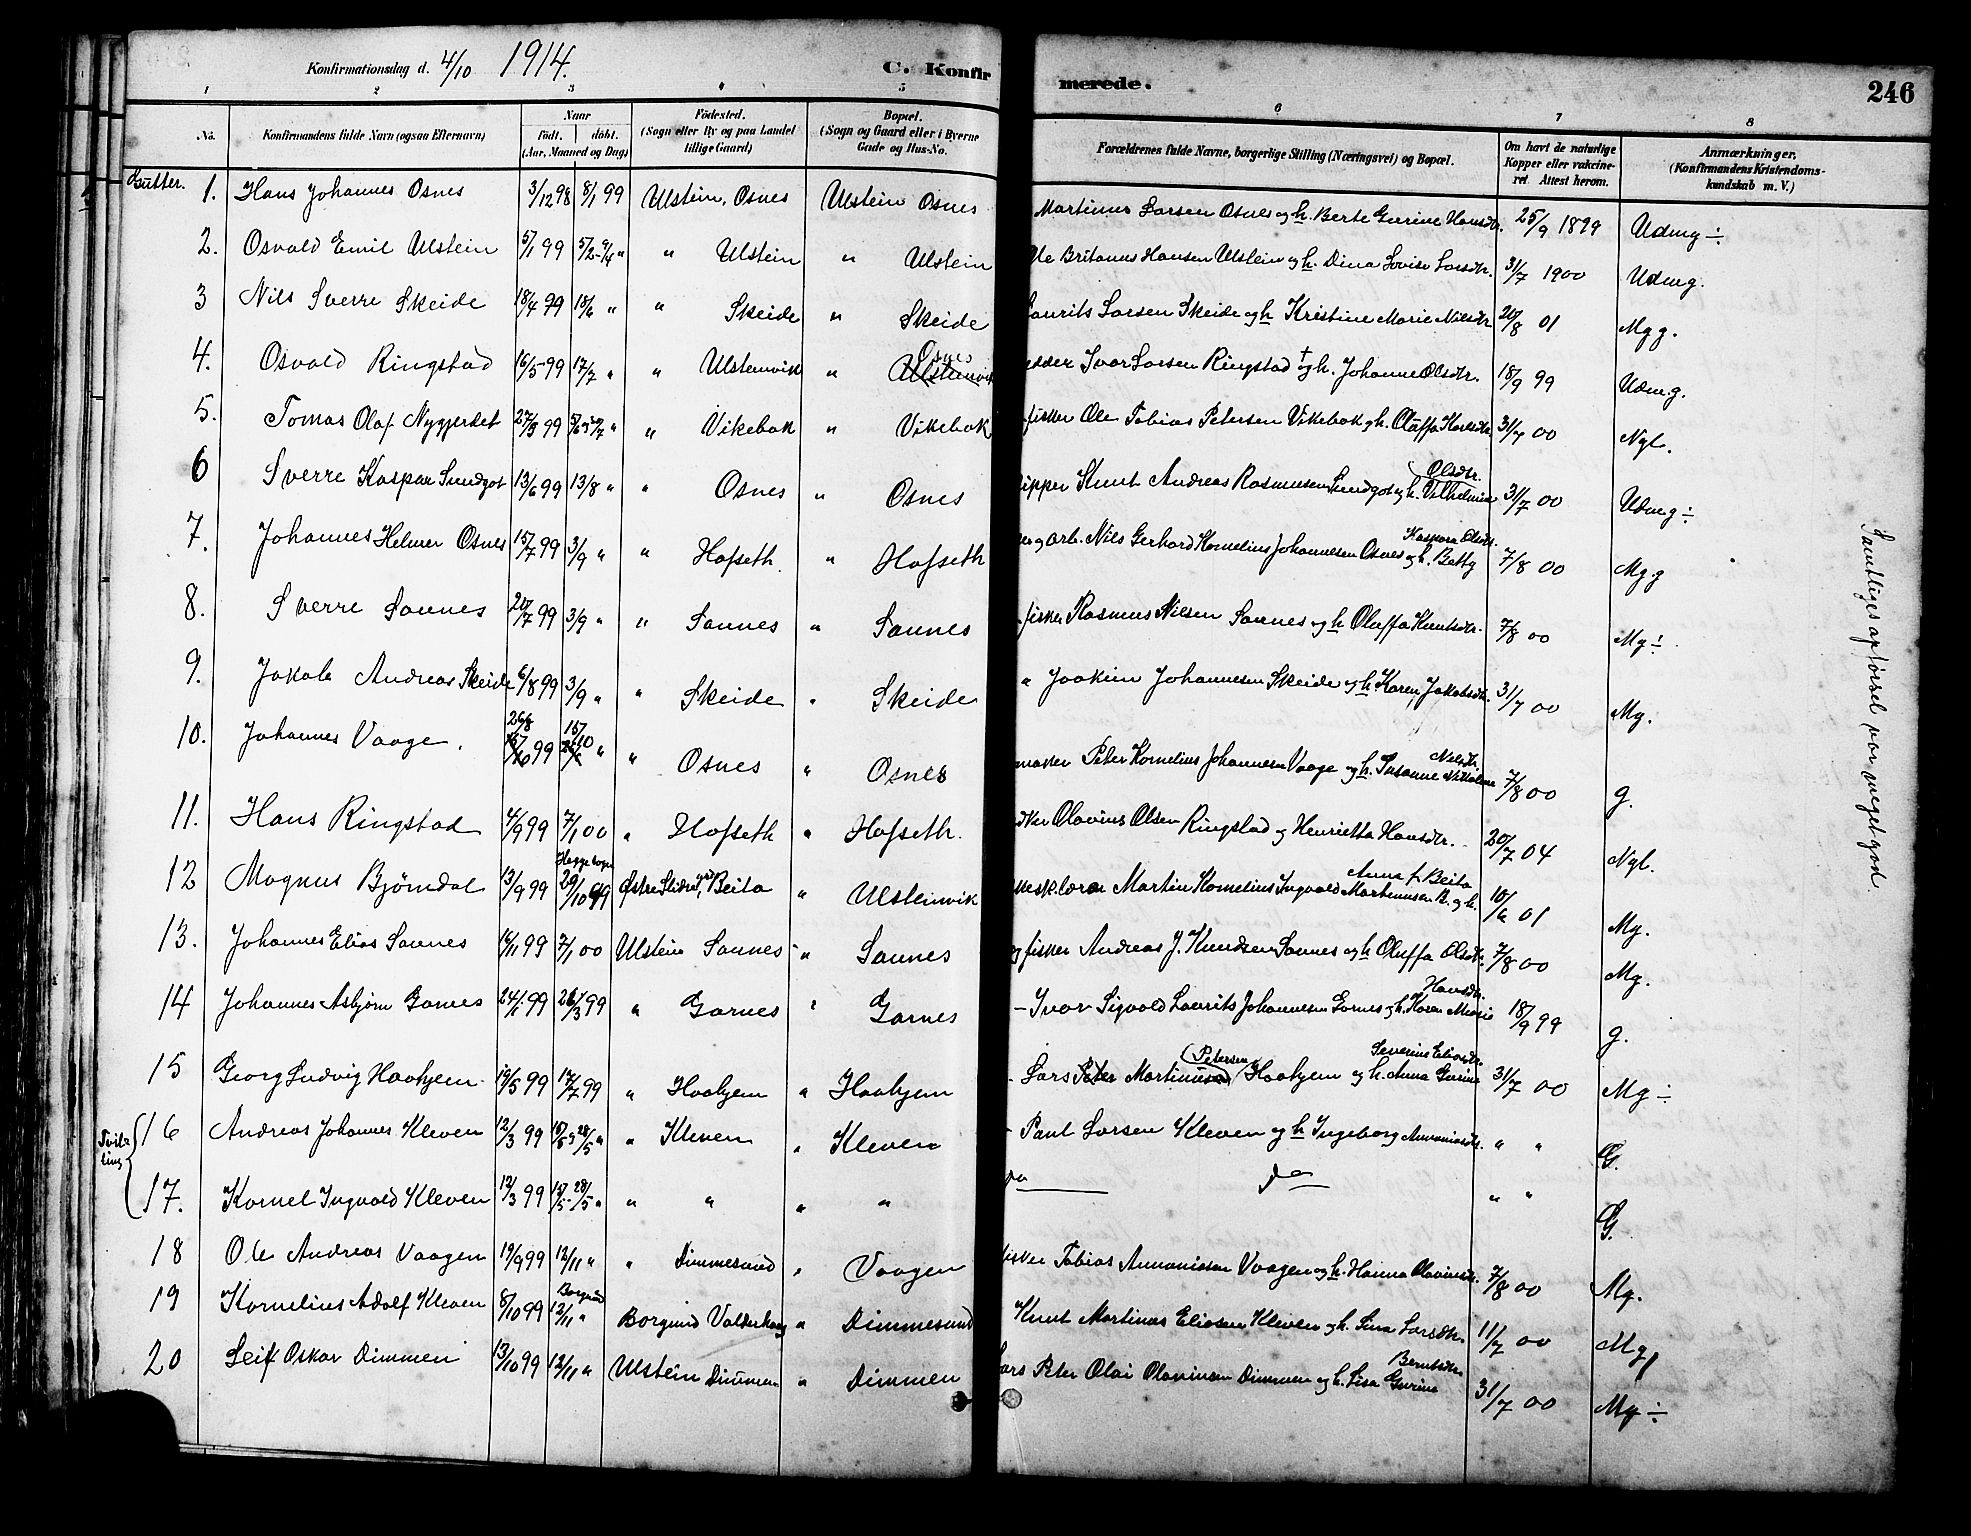 Konfirmationsdag d. 4/10 1914.
C. Konfir
merede.
246
1 2 3 4 5 6 7 8
No.
Konfirmandens fulde Navn (ogsaa Efternavn)
Naar
født. døbt.
(Aar, Maaned og Dag)
Fødested.
(Sogn eller By og paa Landet
tillige Gaard)
Bopæl.
(Sogn og Gaard eller i Byerne
Gade og Hus-No.
Forældrenes fulde Navne, borgerlige Stilling (Næringsvei) og Bopæl.
Om havt de naturlige
Kopper eller vakcine-
ret Attest herom.
Anmærkninger.
(Konfirmandens Kristendoms-
kundskab m. V.)
Gutter.
1. Hans Johannes Osnes 3/12 98 8/1 99 Ulstein, Osnes Ulstein Osnes Martinus Larsen Osnes og h. Berte Gurine Hansdtr. 25/9 1899 Udmg ÷
2. Osvald Emil Ulstein 5/1 99 5/2 - 9/4 " " Ulstein " Ulstein Ole Britanus Hansen Ulstein og h. Dina Lovise Larsdtr. 31/7 1900 Udmg.
3 Nils Sverre Skeide 18/4 99 18/6 " " Skeide " Skeide Laurits Larsen Skeide og h Kristine Marie Nilsdtr 20/8 01 Mgg.
4. Osvald Ringstad 16/5 99 17/7 " " Ulstenvik " Osnes Ulstenvik Ivar Larsen Ringstad † og h. Johanne Olsdtr. 18/9 99 Udm.g.
5. Tomas Olaf Nygjerdet 27/5 99 " " Vikebak " Vikebak fisker Ole Tobias Petersen Vikebak og h. Oluffa Karlsdtr 31/7 00 Ngl.
6 Sverre Kaspar Sundgot 13/6 99 13/8 " " Osnes " Osnes Knut Andreas Rasmussen Sundgot og h. Vilhelmine Olsdtr. 31/7 00 Udm.g ÷
7. Johannes Helmer Osnes 15/7 99 3/9 " " Hofseth. " Hofseth og arb. Nils Gerhard Kornelius Johannesen Osnes og h. Betty Kaspara Olsdtr. 7/8 00 Mg.g
8. Sverre Saunes 20/7 99 3/9 " " Saunes " Saunes fisker Rasmus Nilsen Saunes og h Oluffa Knutsdtr. 7/8 00 Mg ÷
9. Jakob Andreas Skeide 6/8 99 3/9 " " Skeide " Skeide " Joakim Johannesen Skeide og h. Karen Jakobsdtr. 31/7 00 Mg.
10. Johannes Vaage. 26/8 99 15/10 " " Osnes " Osnes Peter Kornelius Johannesen Vaage og h. Susanne Nikoline Nilsdtr. 7/8 00 g.
11. Hans Ringstad 4/9 99 7/1 00 " Hofseth " Hofseth. Olavius Olsen Ringstad og Henrietta Hansdtr. 20/7 04 Ngl.
12 Magnus Bjørndal 13/9 99 Hegge sogn 29/10 99 Østre Slidre, Beito " Ulstenvik Martin Kornelius Ingvald Martinussen B. og h. Anna f. Beito 10/6 01 Mg.
13. Johannes Elias Saunes 16/11 99 7/1 00 Ulstein Saunes " Saunes og fisker Andreas J. Knudsen Saunes og h Oluffa Olsdtr. 7/8 00 Mg.
14 Johannes Asbjørn Garnes 24/1 99 26/3 99 " Garnes " Garnes – Ivar Sigvald Laurits Johannesen Garnes og h. Karen Marie Hansdtr. 18/9 99 g.
15 Georg Ludvig Haahjem 19/5 99 17/7 99 " Haahjem " Haahjem - Lars Peter Martinusen (Petersen) Haahjem og h. Anna Gurine Severine Eliasdtr. 31/7 00 Mg ÷
Tvil-
ling
16 Andreas Johannes Kleven 12/3 99 15/5 28/5 " " Kleven " Kleven - Paul Larsen Kleven og h Ingeborg Ananiasdtr. " " G.
17. Kornel Ingvald Kleven 12/3 99 15/5 - 28/5 " " " " " do " " G.
18 Ole Andreas Vaagen 19/9 99 12/11 " " Dimmesund " Vaagen fisker Tobias Ananiasen Vaagen og h. Hanna Olavinsdtr. 7/8 00 Mg.
19 Kornelius Adolf Kleven 8/10 99 Borgund 12/11 " Borgund Valderhaug " Dimmesund Knut Martinus Eliasen Kleven og h. Lina Larsdtr. 11/7 00 Mg
20 Leif Oskar Dimmen 13/10 99 12/11 " Ulstein Dimmen " Dimmen Lars Peter Olai Olavinsen Dimmen og h. Lisa Gurine Berntsdtr. 31/7 00 Mg ÷
Samtliges opførsel var meget god